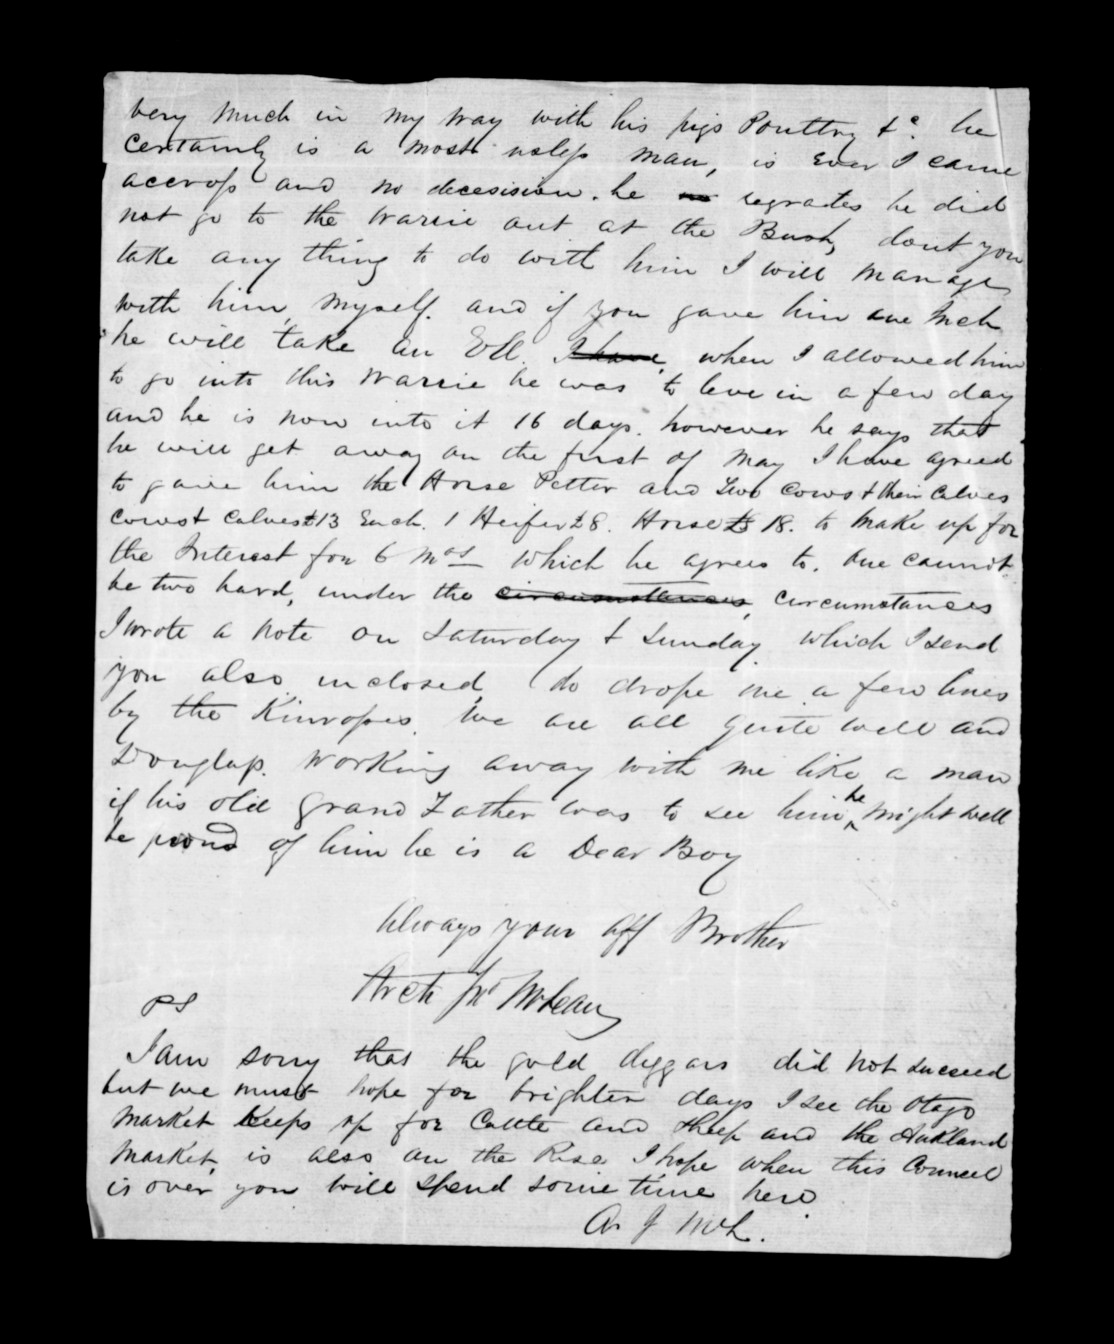 very much in my way with his pigs Poultry &c. he
certainly is a most usless man, is Ever I came
accross and no decesision. he regrates he did
not go to the Warrie out at the Bush, dont you
take any thing to do with him I will manage
with him, myself. and if you gave him one Inch
he will take an Ell. I have, when I allowed him
to go into this Warrie he was to leve in a few day
and he is now into it 16 days. however he says that
he will get away on the first of May I have agreed
to gave him the Horse Petter and Two cows & their calves
cows & calves £13 Each. 1 Heifer £8. Horse £18. to make up for
the Interest for 6 Mos which he agrees to. One cannot
be two hard, under the circumstances, circumstances
I wrote a note on Saturday & Sunday which I send
you also inclosed, do drope me a few lines
by the Kinross. We are all quite well and
Douglass. Working away with me like a man
if his old Grand Father was to see him he might well
be proud of him he is a Dear Boy
Always your aff Brother
Arch Jno McLean
PS
I am sorry that the gold diggars did not succeed
but we must hope for brighter days I see the Otago
Market Keeps up for Cattle and Sheep and the Aukland
Market, is also on the Rise I hope when this Counsel
is over you will spend some time here
Ar J McL.